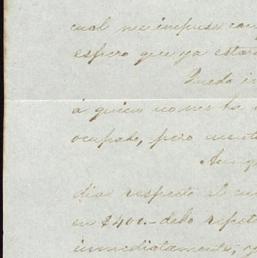 cual me impuse con
espero que ya estar
Queda
á quien no nos ha
ocupado, pero
Aunq
dia respecto al
en $400.- debo repet
inmediatamente,